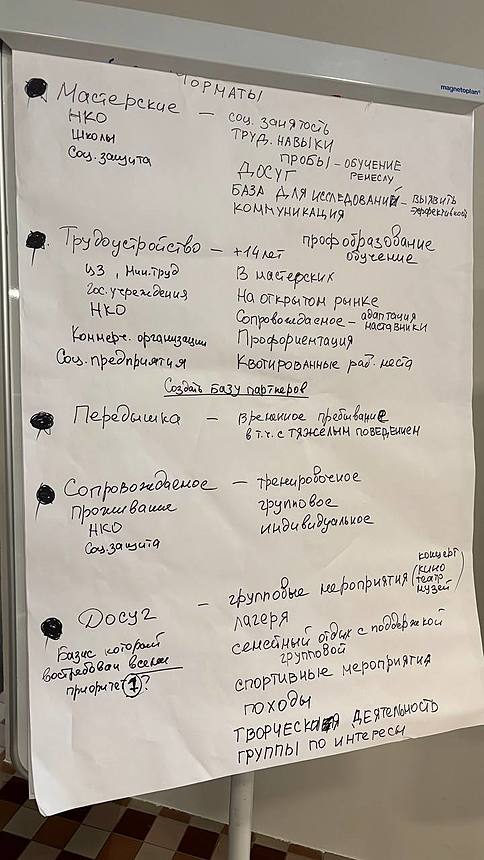 magnetoplan®
ФОРМАТЫ
Мастерские — соц. занятость
НКО
ТРУД. НАВЫКИ
Школы
ПРОБЫ – ОБУЧЕНИЕ РЕМЕСЛУ
Соц. защита
ДОСУГ
БАЗА ДЛЯ ИССЛЕДОВАНИЙ – ВЫЯВИТЬ ЭФФЕКТИВНОСТЬ
КОММУНИКАЦИЯ
Трудоустройство — +14 лет профобразование
обучение
ЦЗ, Мин. труд
В мастерских
Гос. учреждения
На открытом рынке
НКО
Сопровождаемое – адаптация наставники
Коммерч. организации
Профориентация
Соц. предприятия
Квотированные раб. места
Создать базу партнеров
Передышка — временное пребывание
в т.ч. с тяжелым поведением
Сопровождаемое — тренировочное
проживание
групповое
НКО
индивидуальное
Соц. защита
Досуг — групповые мероприятия (концерт
кино
театр
музей
лагеря
Базис который
семейный отдых с поддержкой
востребован всеми
групповой
приоритет 1?
спортивные мероприятия
походы
ТВОРЧЕСКАЯ ДЕЯТЕЛЬНОСТЬ
ГРУППЫ ПО ИНТЕРЕСЫ